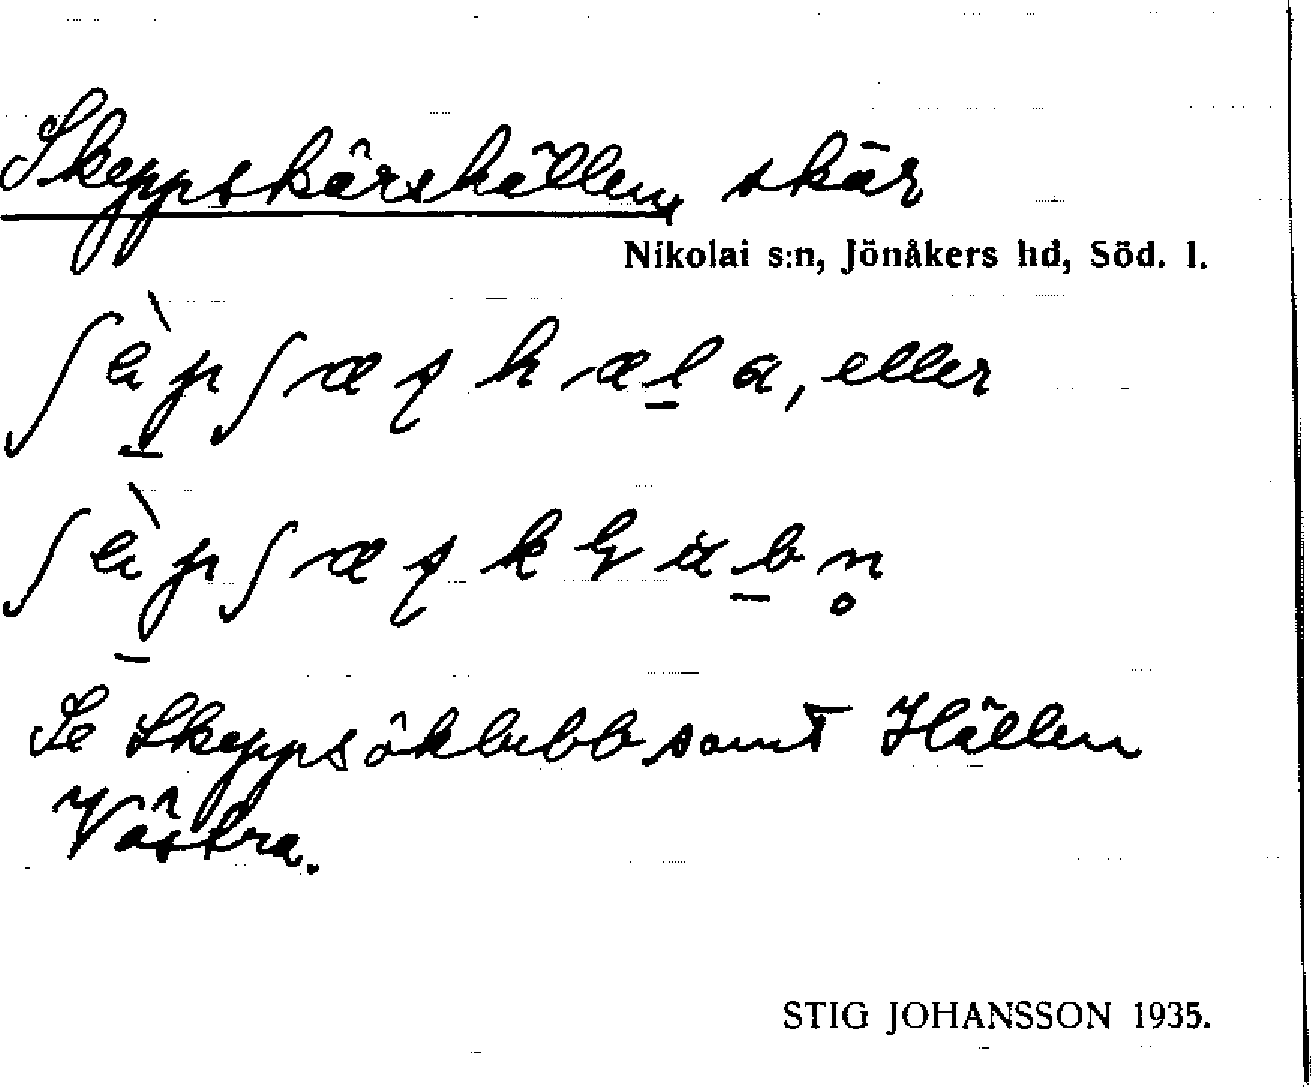 Skeppskärshällen, skär
Nikolai s:n, Jönåkers hd, Söd. l.
eller
Se Skeppsöklubb samt Hällen
Västra.
STIG JOHANSSON 1935.